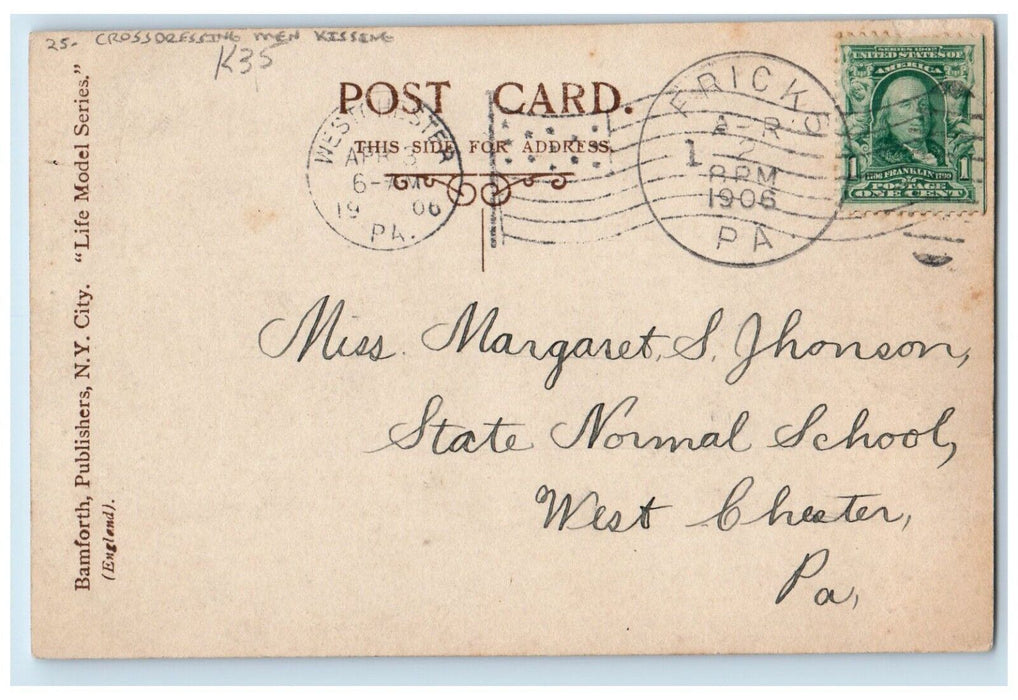 25- CROSSDRESSING MEN KISSING
K35
POST CARD.
THIS SIDE FOR ADDRESS.
WEST CHESTER
APR 3
6-AM
19 06
PA.
FRICKS
APR
1 2
8 PM
1906
PA
SERIES 1902
UNITED STATES OF
AMERICA
1706 FRANKLIN 1790
1 POSTAGE 1
ONE CENT
Miss. Margaret. S. Jhonson,
State Normal School,
West Chester,
Pa,
Bamforth, Publishers, N.Y. City. "Life Model Series."
(England).